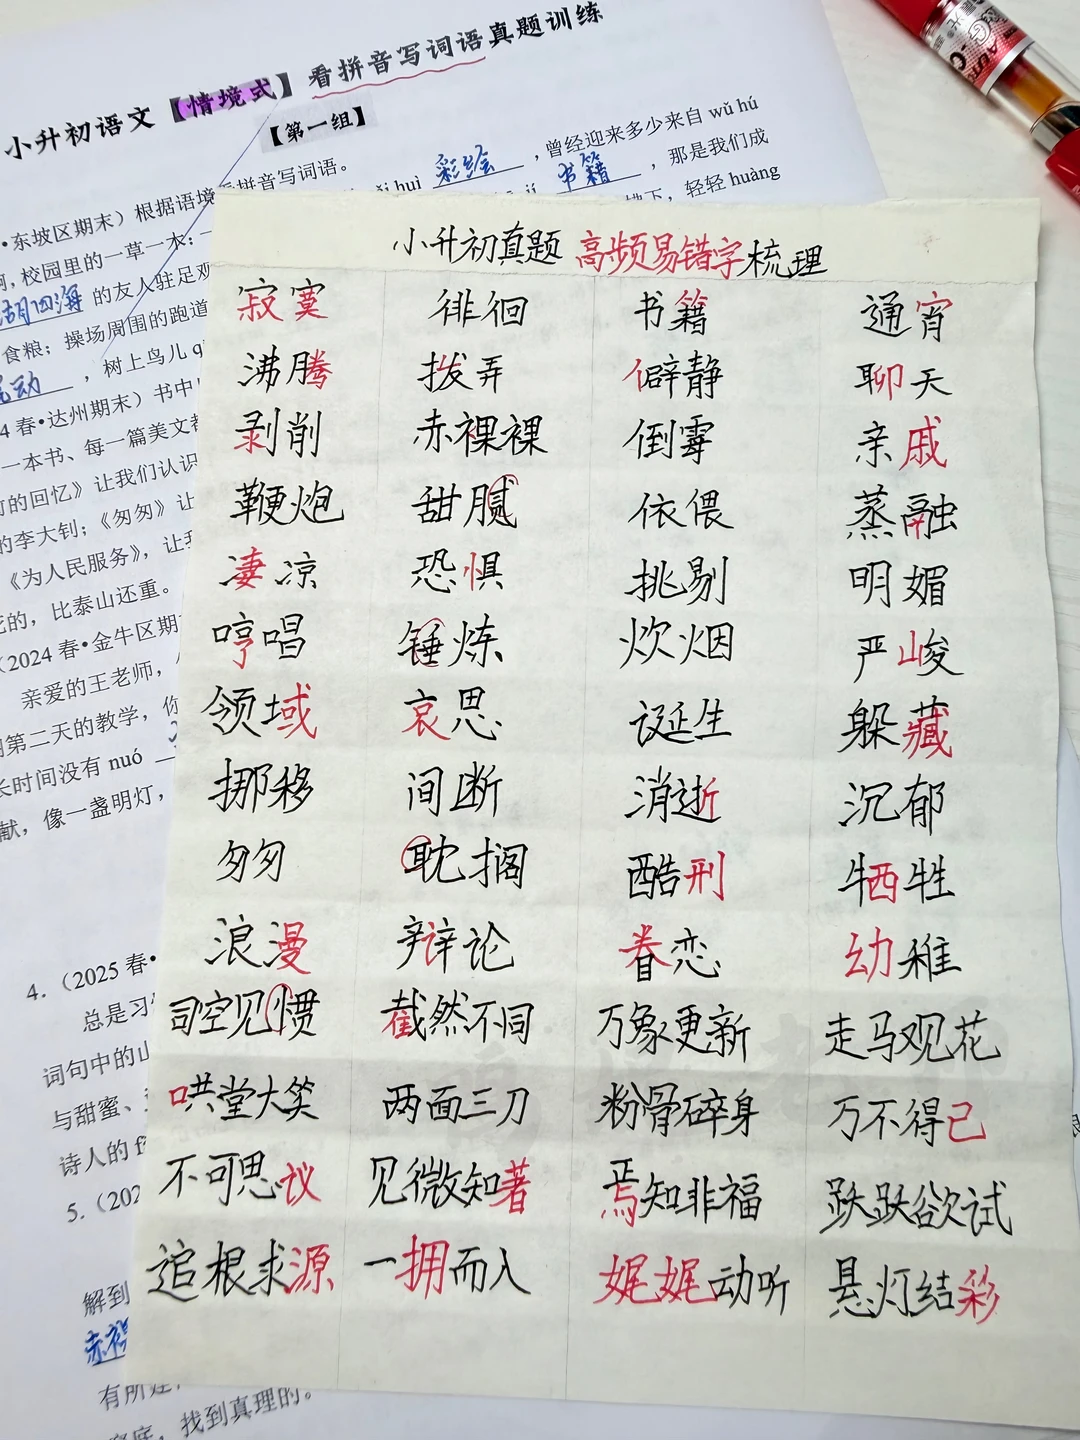 小升初语文【情境式】看拼音写词语真题训练
【第一组】
•东坡区期末）根据语境看拼音写词语。
彩绘，曾经迎来多少来自 wǔ hú
校园里的一草一木：
书籍，那是我们成
轻轻 huàng
的友人驻足观
食粮；操场周围的跑道
，树上鸟儿
春•达州期末）书中
一本书、每一篇美文都
的回忆》让我们认识
的李大钊；《匆匆》让
《为人民服务》，让我
死的，比泰山还重。
（2024 春•金牛区期
亲爱的王老师，
第二天的教学，你
长时间没有 nuó
献，像一盏明灯，
4.（2025 春•
总是习
词句中的山
与甜蜜、
诗人的
5.（202
解到
赤裸
，找到真理的。
小升初真题 高频易错字梳理
寂寞 徘徊 书籍 通宵
沸腾 拨弄 僻静 聊天
剥削 赤裸裸 倒霉 亲戚
鞭炮 甜腻 依偎 蒸融
凄凉 恐惧 挑剔 明媚
哼唱 锤炼 炊烟 严峻
领域 哀思 诞生 躲藏
挪移 间断 消逝 沉郁
匆匆 耽搁 酷刑 牺牲
浪漫 辩论 眷恋 幼稚
司空见惯 截然不同 万象更新 走马观花
哄堂大笑 两面三刀 粉骨碎身 万不得已
不可思议 见微知著 焉知非福 跃跃欲试
追根求源 一拥而入 娓娓动听 悬灯结彩